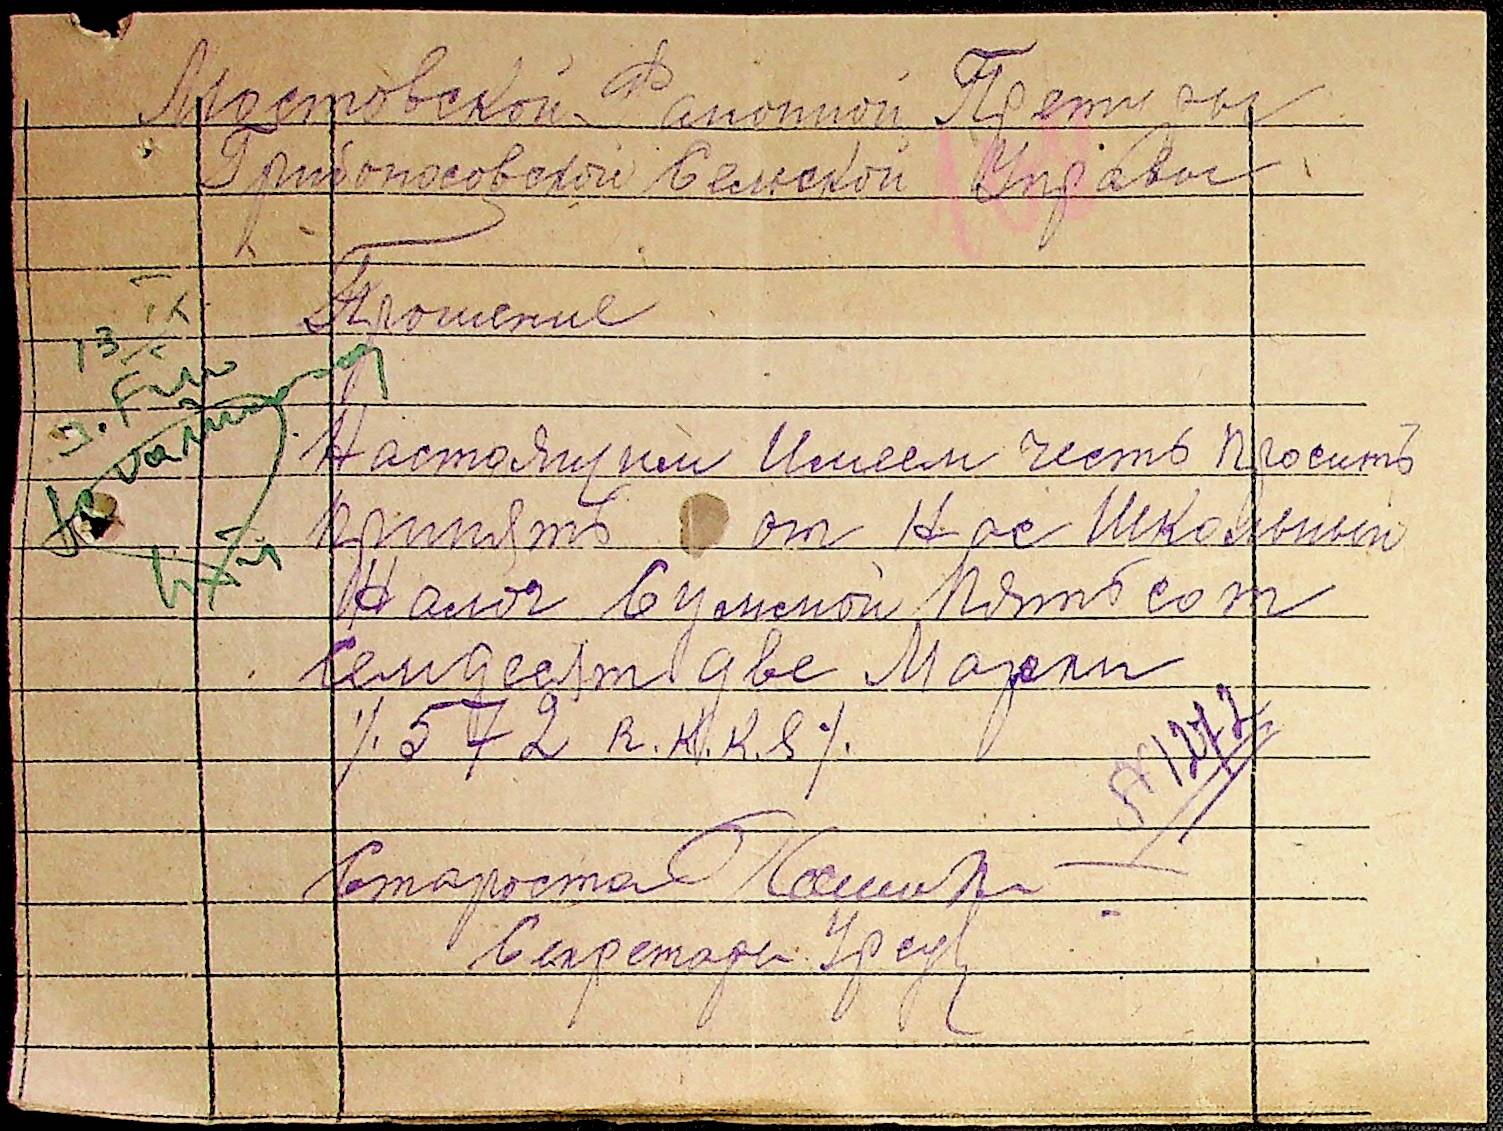 Мостовской Районной Претуры
Грибоносовской Сельской Управы
Прошение
Настоящим Имеем честь просить
принять от Нас Школьный
Налог Суммой Пятьсот
Семдесят две Марки
/. 572 R.K.K.S /.
№ 1272
Староста
Секретарь Урсу
13/IX